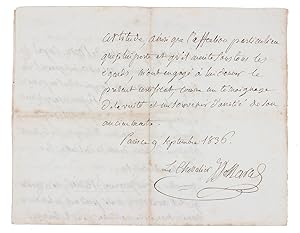 certitude ainsi que l'affection particulière
que je lui porte et qu'il mérite sous tous les
égards, m'ont engagé à lui donner le
présent certificat comme un témoignage
de la vérité et un souvenir d'amitié de son
ancien maître.
9 Septembre 1836.
Le Chevalier